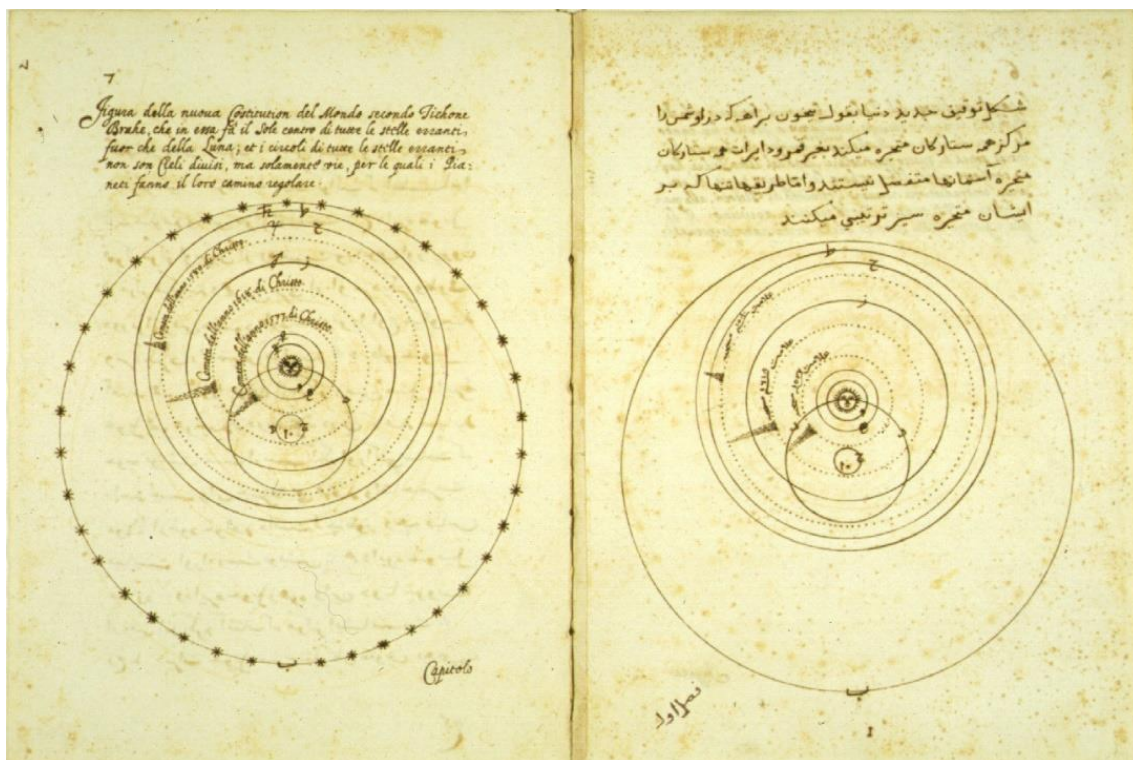 7
Figura della nuova Costitution del Mondo secondo Tichone
Brahe, che in essa fà il Sole centro di tutte le stelle erranti,
fuor che della Luna; et i circoli di tutte le stelle erranti,
non son Cieli divisi, ma solamente vie, per le quali i Pia:
neti fanno il loro camino regolare.
♄ ط
♃ ح
♂ ز
Cometa dell'anno 1618 di Christo
Cometa dell'anno 1577 di Christo
ب
Capitolo
شكل توفيق جديد دنيا بقول تيخون براهه كه در او شمس را
مركز همه ستارگان متحيره ميكند بغير قمر ودايرات همه ستارگان
متحيره آسمانها منفصل نيستند واما طريقها تنها كه بر
ايشان متحيره سير ترتيبى ميكنند
ط
ح
ز
ب
فصل اول
1